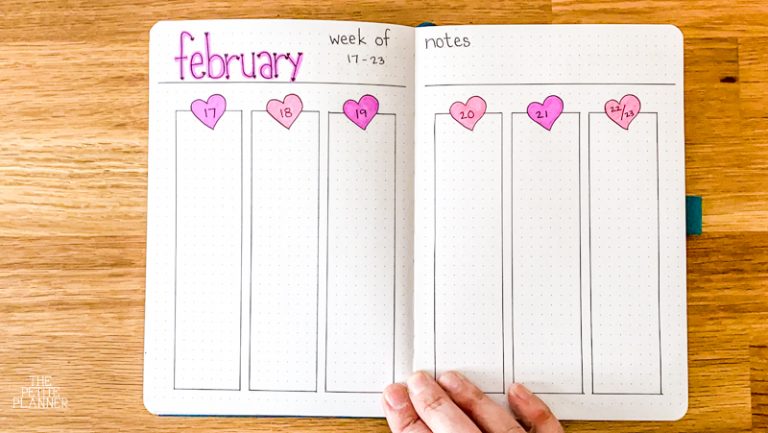 february
week of
17-23
notes
17
18
19
20
21
22/23
THE
PETITE
PLANNER